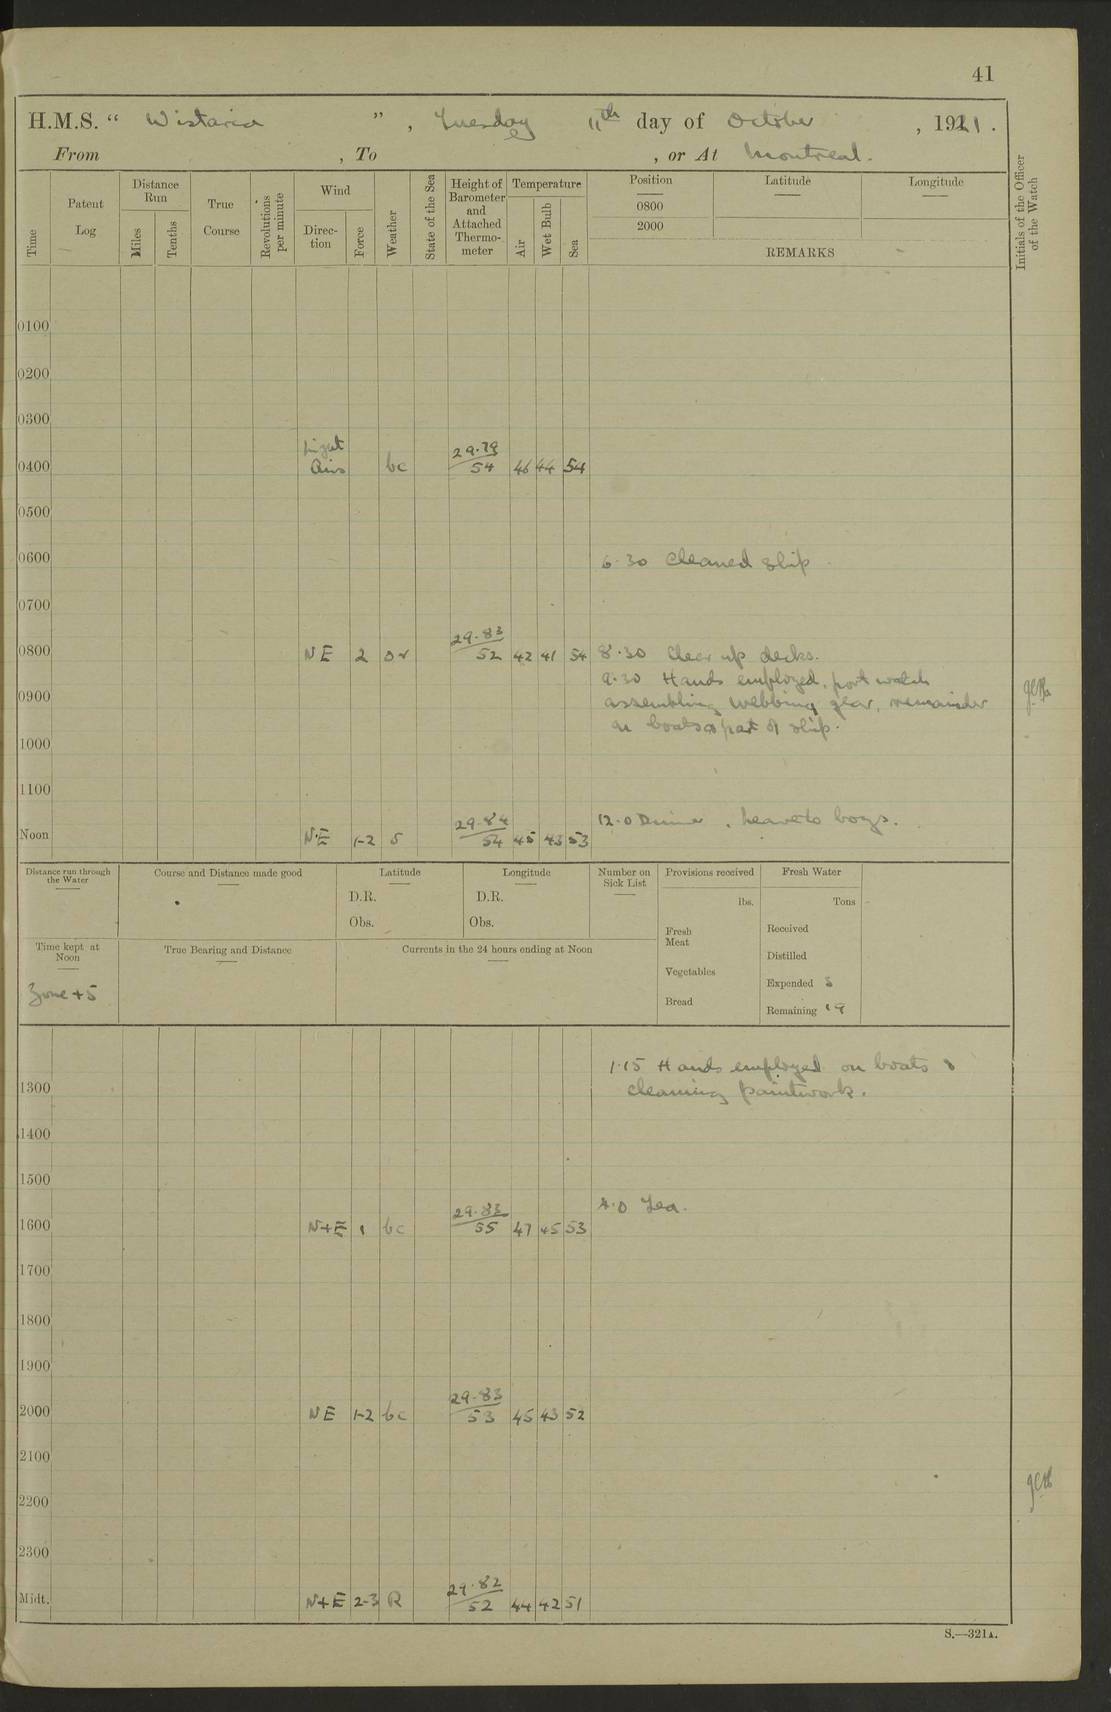 41
H.M.S. “ Wistaria ” , Tuesday 11th day of October , 1921 .
From , To , or At Montreal.
Time
Patent Log
Distance Run
Miles
Tenths
True Course
Revolutions per minute
Wind
Direction
Force
Weather
State of the Sea
Height of Barometer and Attached Thermometer
Temperature
Air
Wet Bulb
Sea
Position
0800
2000
Latitude
Longitude
REMARKS
Initials of the Officer of the Watch
0100
0200
0300
Light 29.79
0400 Airs bc 54 46 44 54
0500
0600 6.30 Cleaned ship
0700
29.83
0800 NE 2 or 52 42 41 54 8.30 Clear up decks.
9.30 Hands employed, port watch
0900 assembling webbing gear, remainder
on boats & part of ship.
1000
1100
29.84 12.0 Dinner. Leave to boys.
Noon NE 1-2 S 54 45 43 53
Distance run through the Water
Course and Distance made good
Latitude
D.R.
Obs.
Longitude
D.R.
Obs.
Number on Sick List
Provisions received
lbs.
Fresh Meat
Vegetables
Bread
Fresh Water
Tons
Received
Distilled
Expended 3
Remaining 19
Time kept at Noon
Zone +5
True Bearing and Distance
Currents in the 24 hours ending at Noon
1.15 Hands employed on boats &
1300 cleaning paintwork.
1400
1500
29.83 4.0 Tea.
1600 N+E 1 bc 55 47 45 53
1700
1800
1900
29.83
2000 NE 1-2 bc 53 45 43 52
2100
2200
2300
29.82
Midt. N+E 2-3 R 52 44 42 51
S.—321A.